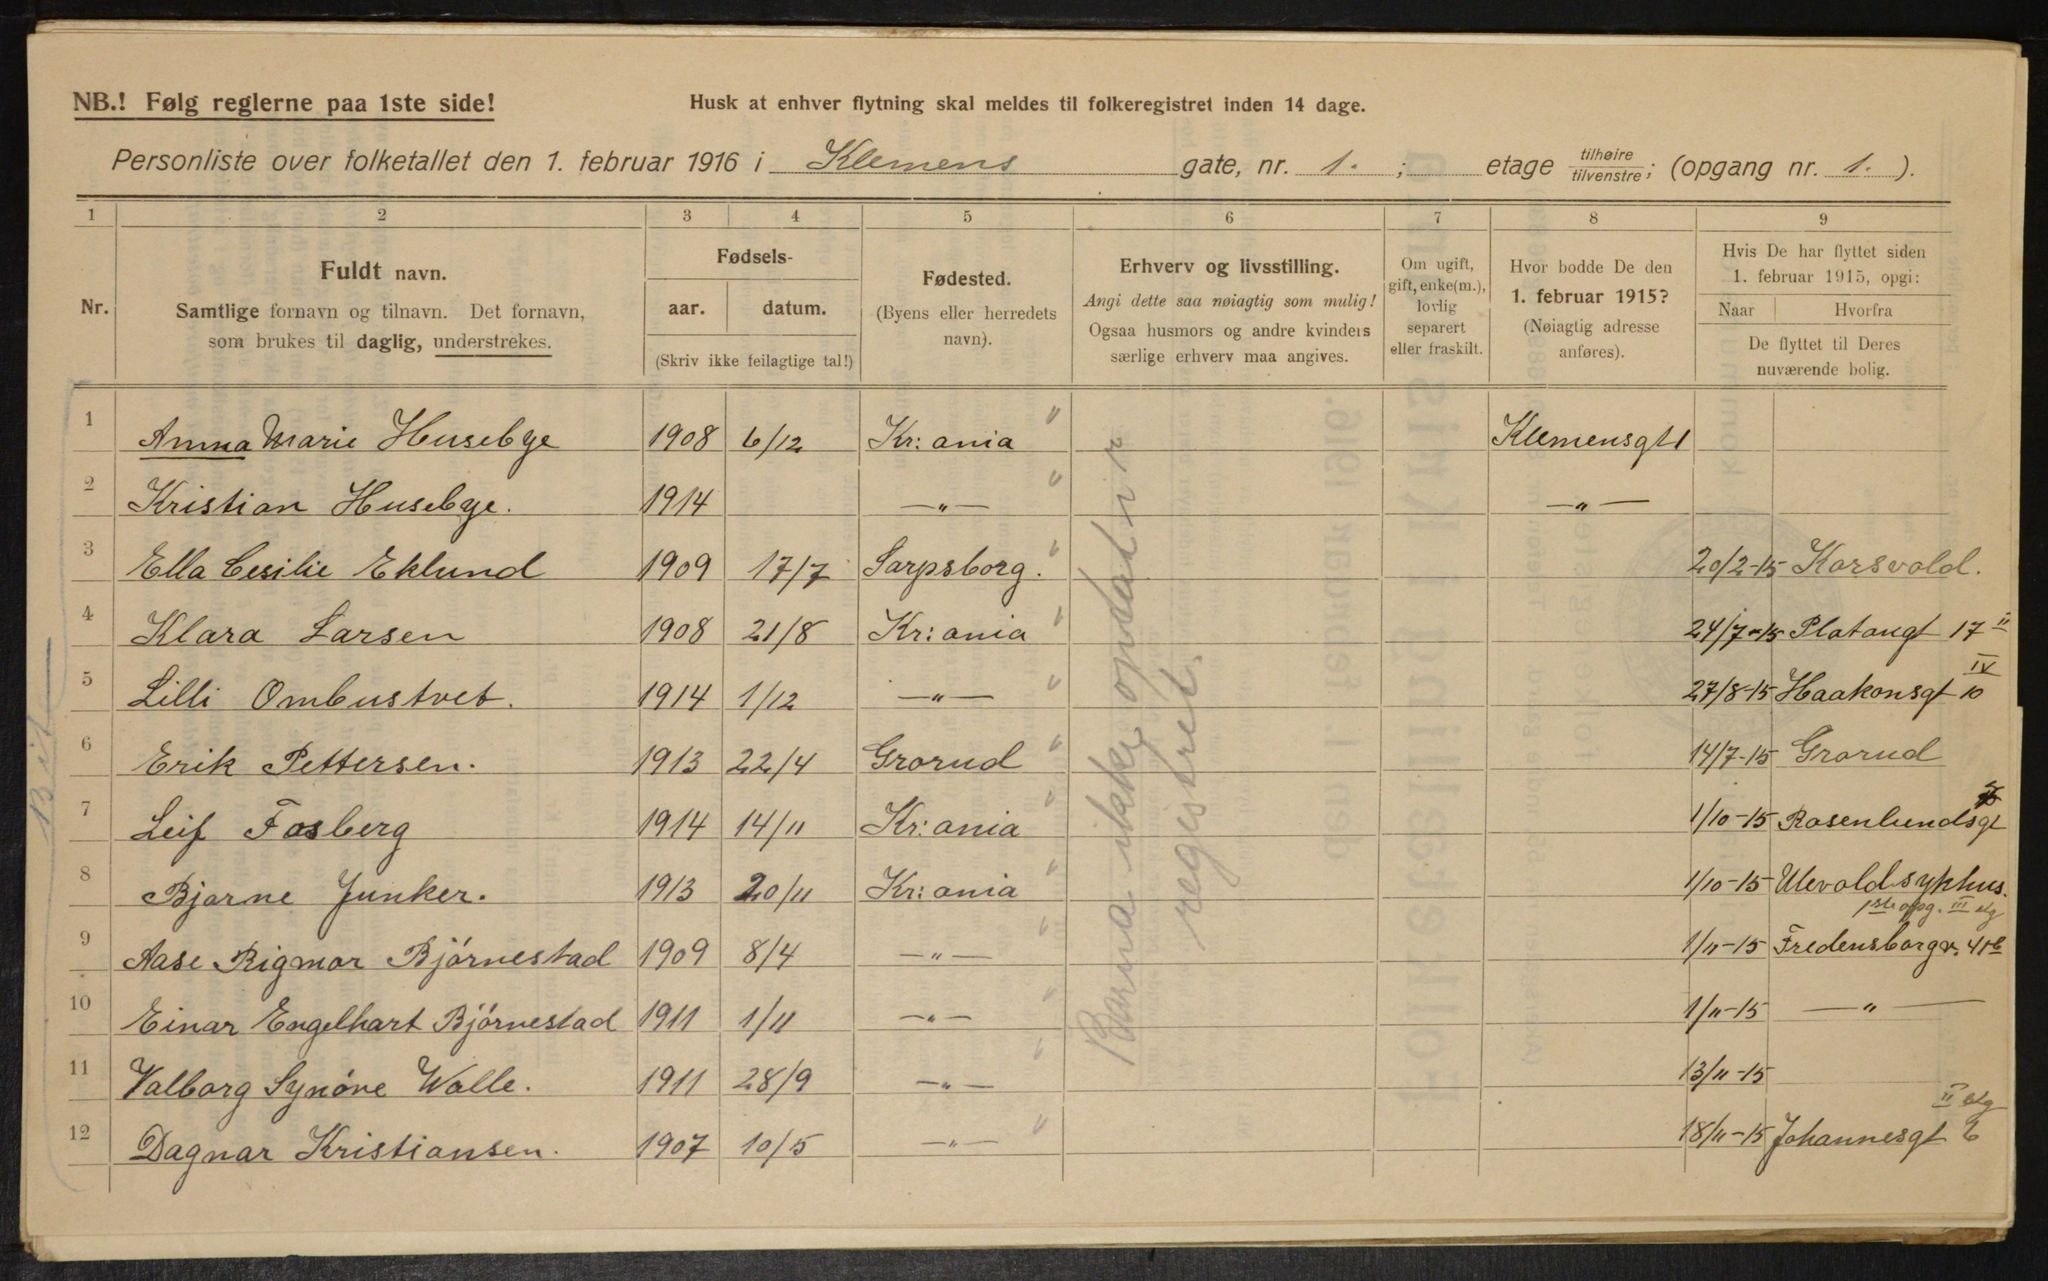 NB.! Følg reglerne paa 1ste side!
Husk at enhver flytning skal meldes til folkeregistret inden 14 dage.
Personliste over folketallet den 1. februar 1916 i Klemens gate, nr. 1. ; etage tilhøire tilvenstre; (opgang nr. 1. ).
1 2 3 4 5 6 7 8 9
Nr.
Fuldt navn.
Samtlige fornavn og tilnavn. Det fornavn,
som brukes til daglig, understrekes.
Fødsels-
aar. datum.
(Skriv ikke feilagtige tal!)
Fødested.
(Byens eller herredets
navn).
Erhverv og livsstilling.
Angi dette saa nøiagtig som mulig!
Ogsaa husmors og andre kvinders
særlige erhverv maa angives.
Om ugift,
gift, enke(m.),
lovlig
separert
eller fraskilt.
Hvor bodde De den
1. februar 1915?
(Nøiagtig adresse
anføres).
Hvis De har flyttet siden
1. februar 1915, opgi:
Naar Hvorfra
De flyttet til Deres
nuværende bolig.
1 Anna Marie Husebye 1908 6/12 Kr:ania " Klemensgt 1
2 Kristian Husebye. 1914 —„— " —„—
3 Ella Cesilie Eklund 1909 17/7 Sarpsborg. " 20/2-15 Korsvold.
4 Klara Larsen 1908 21/8 Kr:ania " 24/7-15 Platougt 17 II
5 Lilli Ombustvet. 1914 1/12 —„— " 27/8-15 Haakonsgt 10 IV
6 Erik Pettersen. 1913 22/4 Grorud " 14/7-15 Grorud
7 Leif Fosberg 1914 14/11 Kr:ania " 1/10-15 Rosenlundsgt
8 Bjarne Junker. 1913 20/11 Kr:ania " 1/10-15 Ulevoldsykhus.
1ste opg. III etg
9 Aase Rigmor Bjørnestad 1909 8/4 —„— " 1/11-15 Fredensborgv. 41b
10 Einar Engelhart Bjørnestad 1911 1/11 —„— " 1/11-15 —„—
11 Valborg Synøve Walle. 1911 28/9 —„— " 13/11-15
II etg
12 Dagnar Kristiansen. 1907 10/5 —„— " 18/11-15 Johannesgt 6
Barna ikke
registret.